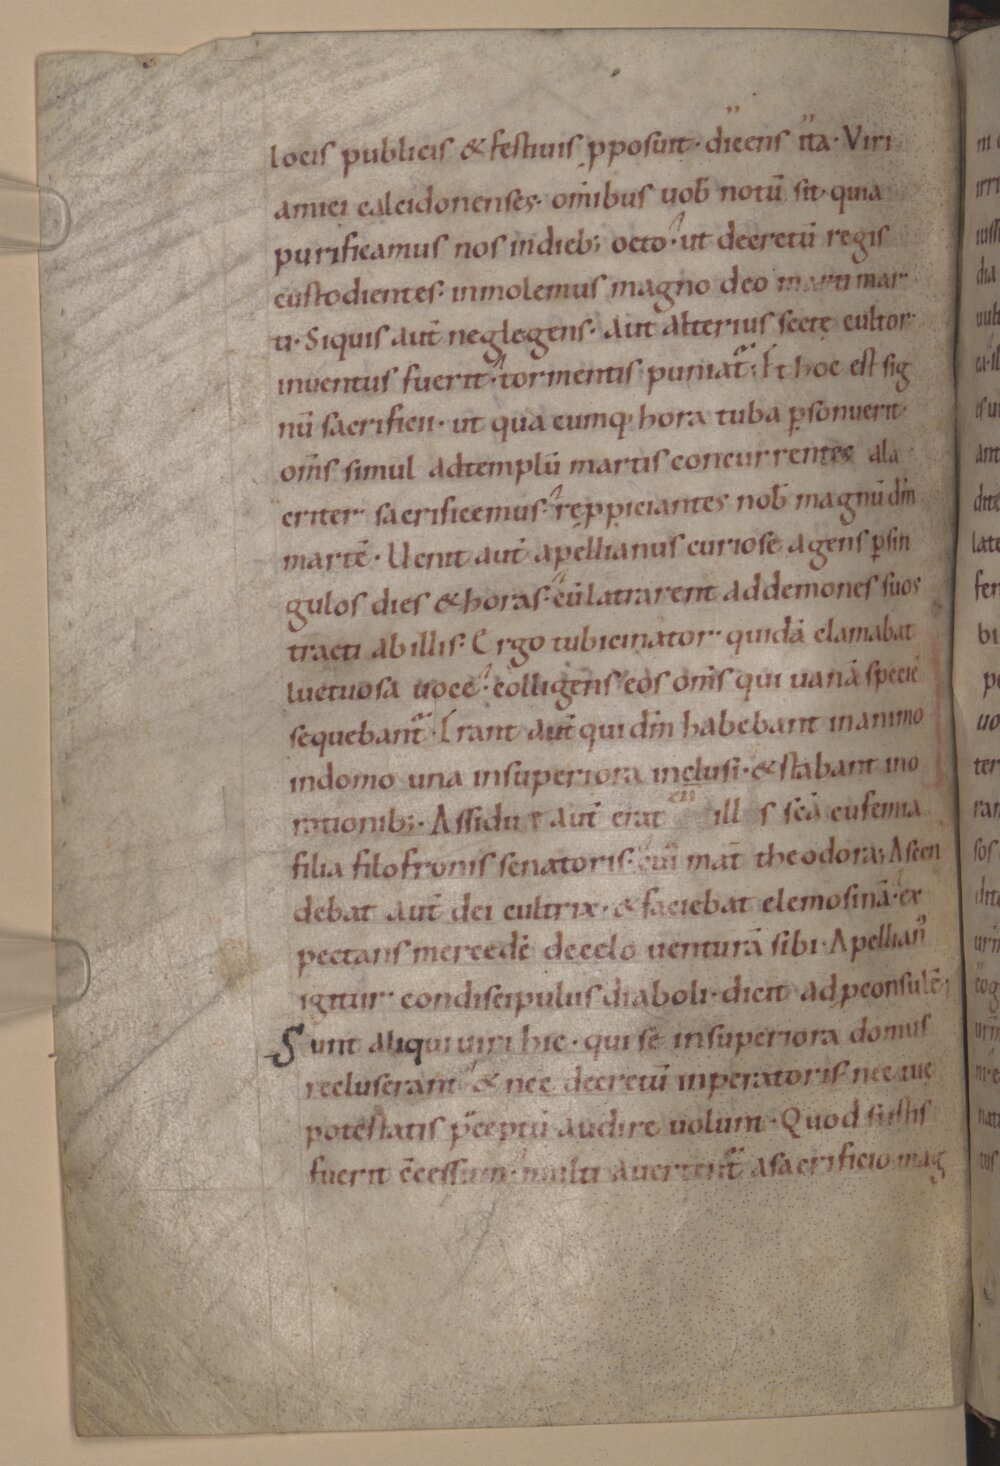 locis publicis & festiuis pposuit · dicens ita · Viri
amici calcidonenses · om̄ibus uob̄ notū sit · quia
purificamus nos indieb; octo · ut decretū regis
custodientes · inmolemus magno deo marti mar
ti · Siquis aut̄ neglegens · aut alterius sectę cultor
inventus fuerit · tormentis puniat̄ · Et hoc est sig
nū sacrificii · ut qua cumq; hora tuba psonuerit
om̄s simul adtemplū martis concurrentes ala
criter sacrificemus · reppiciantes nob̄ magnū dm̄
martē · Uenit aut̄ apellianus curiose agens p sin
gulos dies & horas · cū latrarent ad demones suos
tracti ab illis · Ergo tubicinator quidā clamabat
luctuosa uoce · colligens eos om̄s qui uanā speciē
sequebant̄ · Erant aut̄ qui dm̄ habebant inanimo
indomo una insuperiora inclusi · & stabant ino
rationib; · Assidue aut̄ erat cū ill s scā eufemia
filia filofronis senatoris · cui mat̄ theodora; Ascen
debat aut̄ dei cultrix · & faciebat elemosinā · ex
pectans mercedē decelo venturā sibi · Apellian̄
igitur condiscipulus diaboli · dicit ad pconsulē;
Sunt aliqui uiri hic · qui se insuperiora domus
recluserant & nec decretū inperatoris nec tuę
potestatis pceptū audire uolunt · Quod si istis
fuerit c̄cessum · multi avertent̄ asacrificio mag